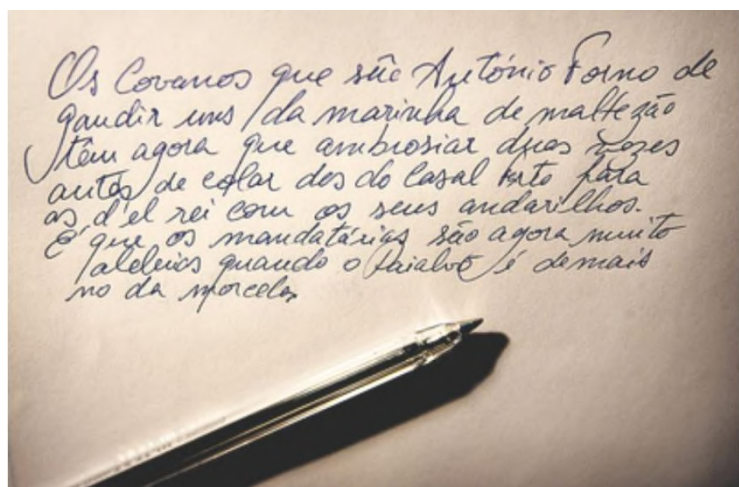 Os Covanos que são António Forno de
gaudir uns da marinha de maltezão
têm agora que ambrosiar duas vezes
antes de colar dos do Casal para
as d'el rei com os seus andarilhos.
É que os mandatárias são agora muito
quando o Paialvo é demais
no da morcela